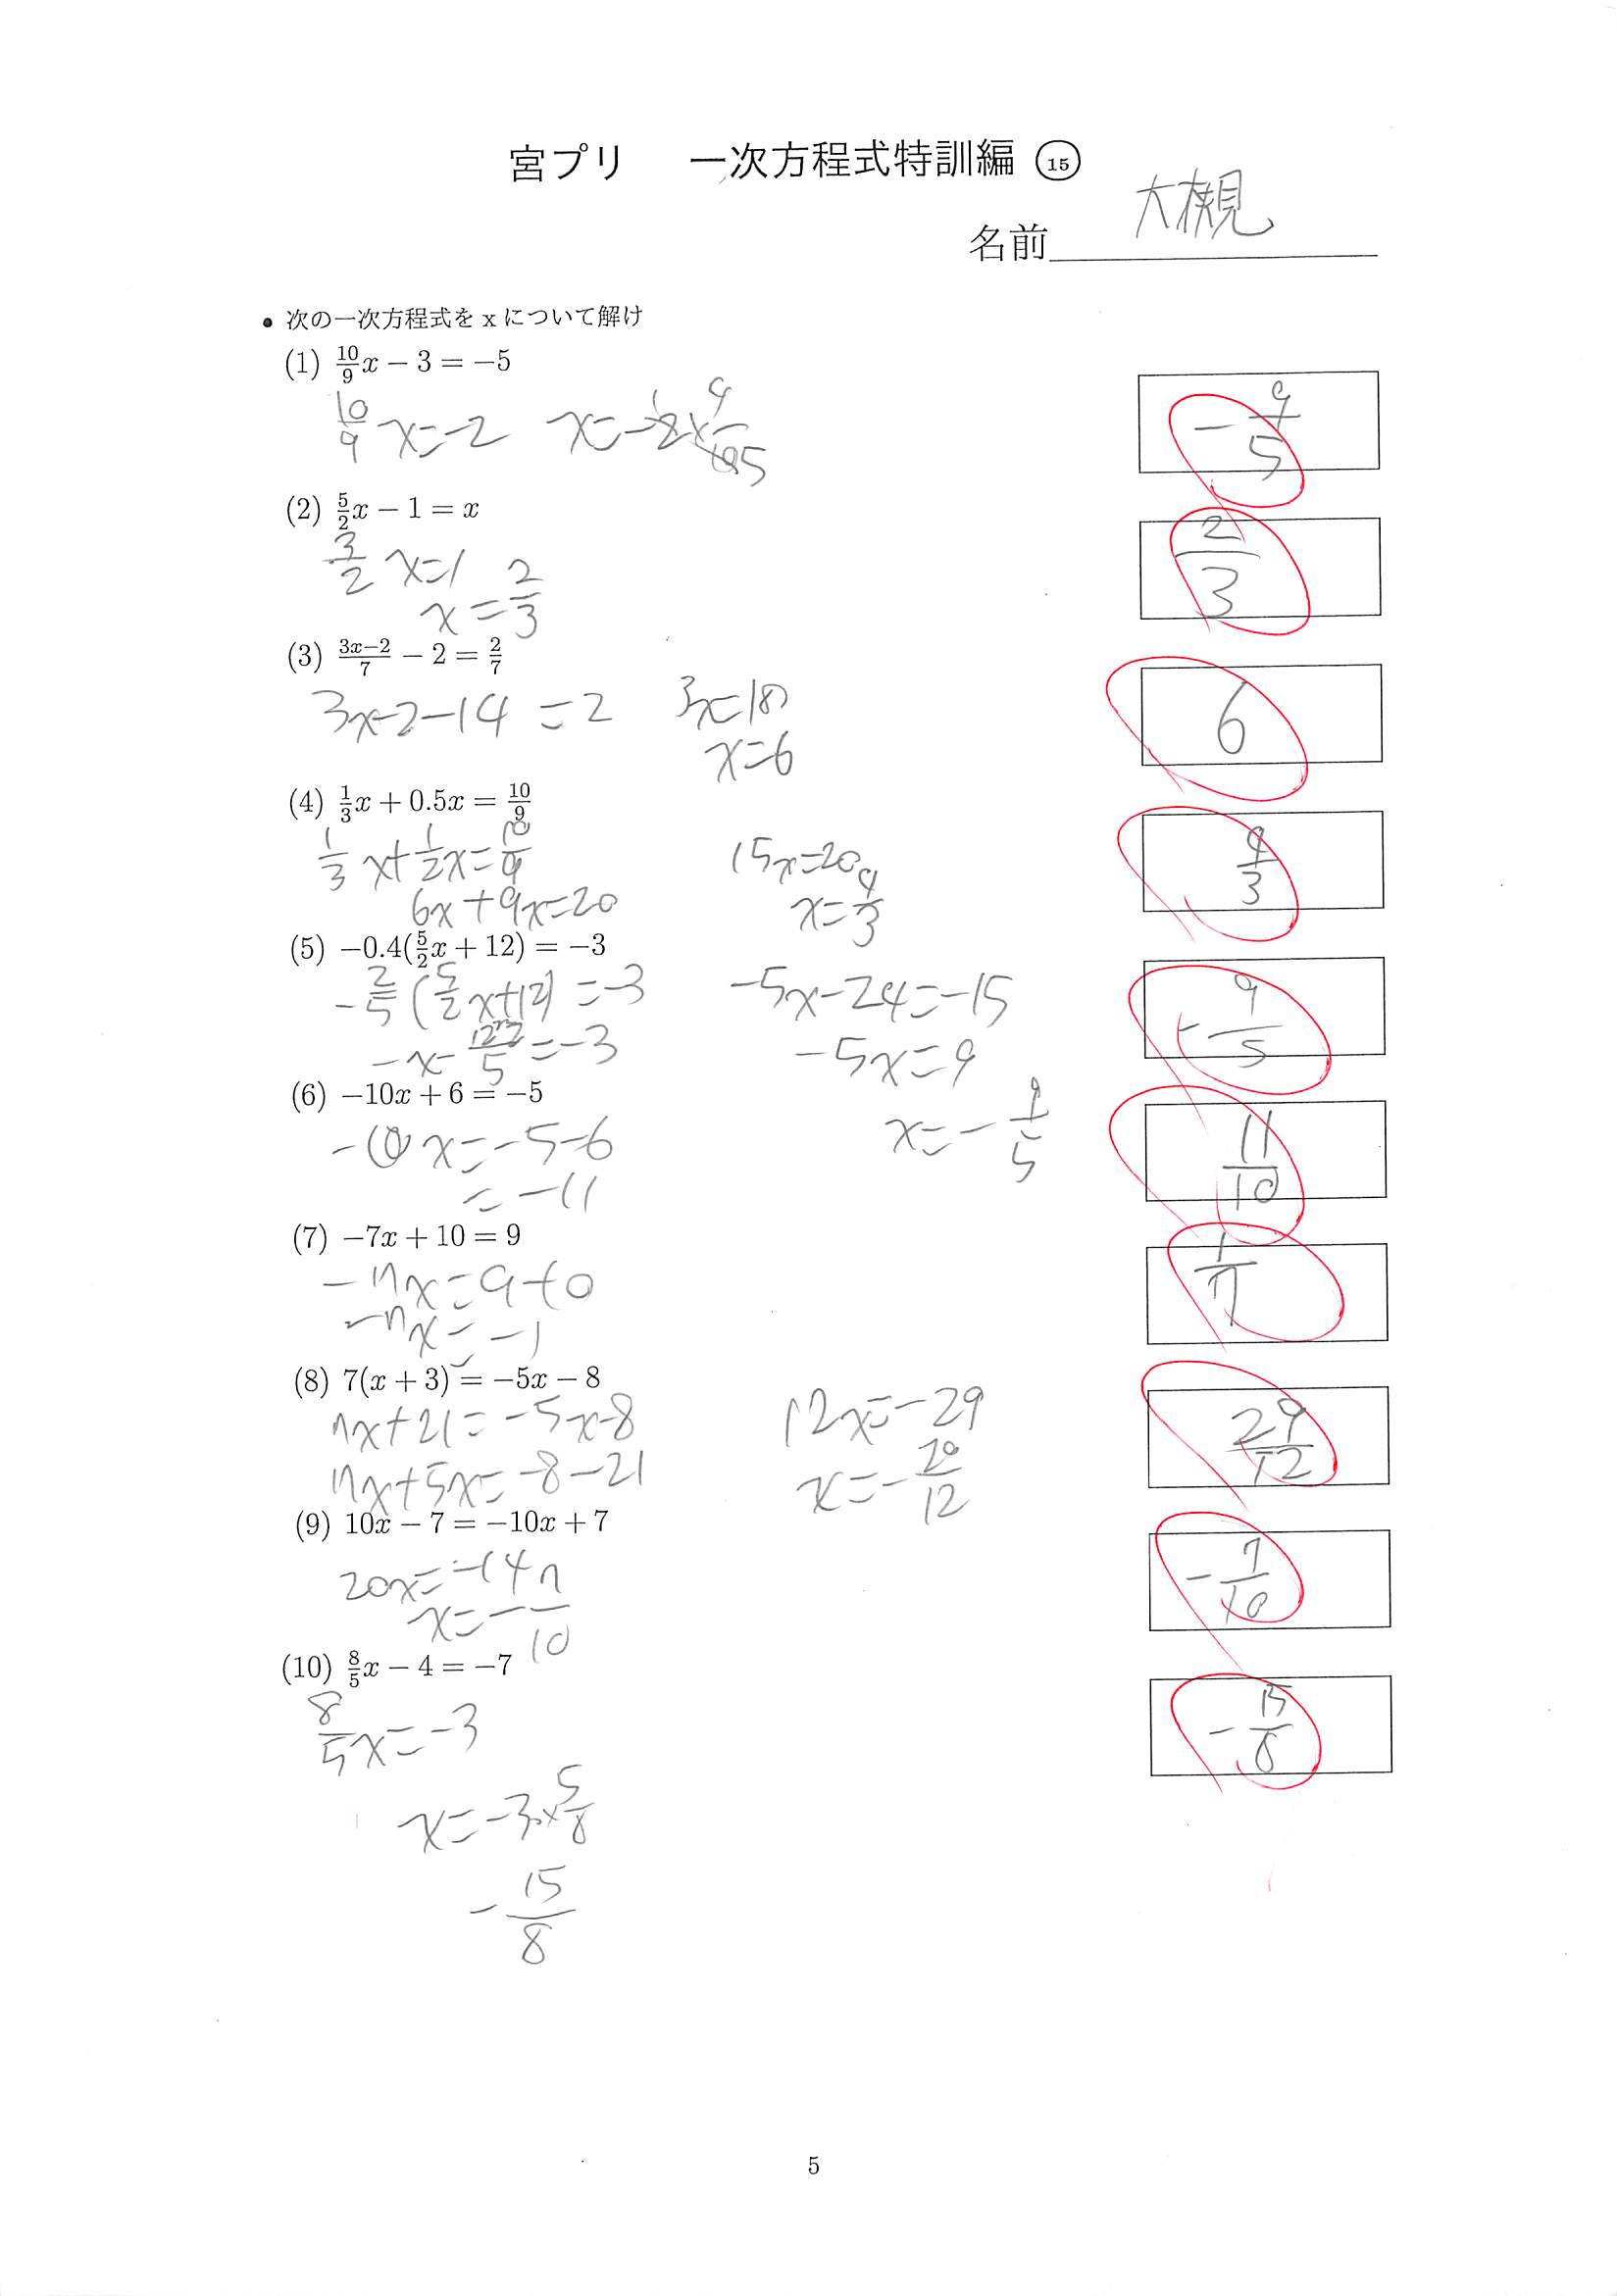 宮プリ 一次方程式特訓編 ⑮
名前 大槻
• 次の一次方程式を x について解け
(1) 10/9 x − 3 = −5
10/9 x = −2 x = −2 × 9/10 1 5
−9/5
(2) 5/2 x − 1 = x
3/2 x = 1
x = 2/3
2/3
(3) (3x−2)/7 − 2 = 2/7
3x−2−14 = 2 3x = 18
x = 6
6
(4) 1/3 x + 0.5x = 10/9
1/3 x + 1/2 x = 10/9 15x = 20
6x + 9x = 20 x = 4/3
4/3
(5) −0.4(5/2 x + 12) = −3
−2/5 (5/2 x + 12) = −3 −5x − 24 = −15
−x − 12×2/5 = −3 −5x = 9
x = −9/5
−9/5
(6) −10x + 6 = −5
−10x = −5−6
= −11
11/10
(7) −7x + 10 = 9
−7x = 9−10
−7x = −1
1/7
(8) 7(x + 3) = −5x − 8
7x + 21 = −5x − 8 12x = −29
7x + 5x = −8 − 21 x = −29/12
29/12
(9) 10x − 7 = −10x + 7
20x = −14
x = −7/10
−7/10
(10) 8/5 x − 4 = −7
8/5 x = −3
x = −3 × 5/8
−15/8
−15/8
5